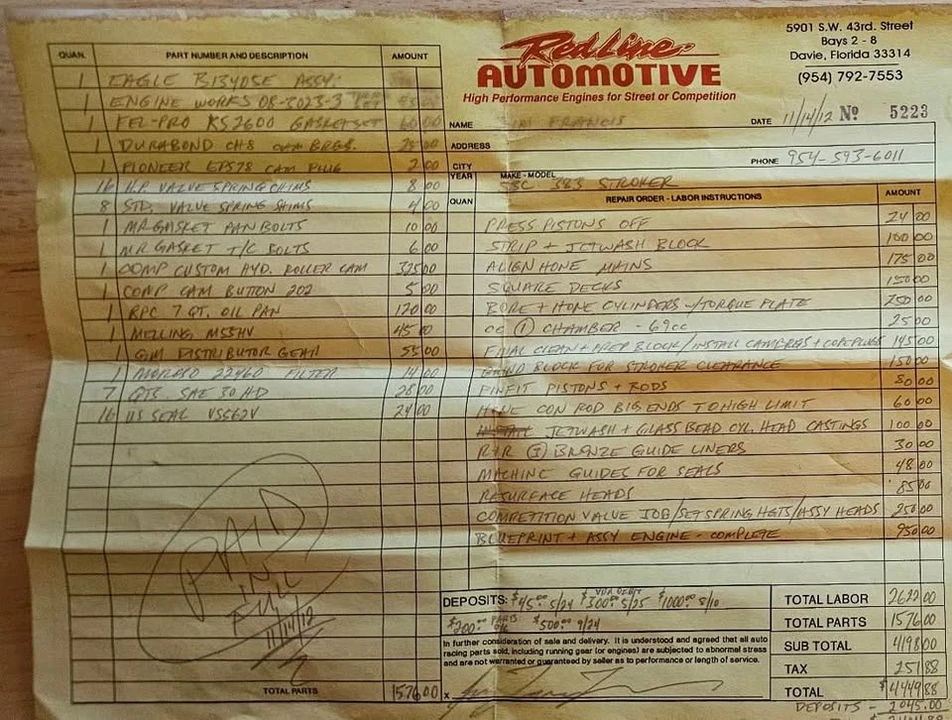 RedLine
AUTOMOTIVE
High Performance Engines for Street or Competition
5901 S.W. 43rd. Street
Bays 2 - 8
Davie, Florida 33314
(954) 792-7553
NAME FRANCIS
DATE 11/14/12 No 5223
ADDRESS
CITY
PHONE 954-593-6011
YEAR MAKE - MODEL SBC 383 STROKER
QUAN. PART NUMBER AND DESCRIPTION AMOUNT
1 EAGLE ASSY.
1 ENGINE WORKS 08-3023-3
1 FEL-PRO KS2600 GASKET SET 60 00
1 DURABOND CH8 CAM BRGS. 25 00
1 PIONEER EPS78 CAM PLUG 2 00
16 H.P. VALVE SPRING SHIMS 8 00
8 STD. VALVE SPRING SHIMS 4 00
1 MR GASKET PAN BOLTS 10 00
1 MR GASKET T/C BOLTS 6 00
1 COMP CUSTOM HYD. ROLLER CAM 325 00
1 COMP CAM BUTTON 202 5 00
1 RPC 7 QT. OIL PAN 120 00
1 MELLING M55HV 45 00
1 GM DISTRIBUTOR GEAR 55 00
1 MOROSO 22460 FILTER 14 00
7 QTS. SAE 30 HD 28 00
16 US SEAL VS562V 24 00
PAID
IN
FULL
11/14/12
TOTAL PARTS 1576 00
QUAN REPAIR ORDER - LABOR INSTRUCTIONS AMOUNT
PRESS PISTONS OFF 24 00
STRIP + JETWASH BLOCK 100 00
ALIGN HONE MAINS 175 00
SQUARE DECKS 150 00
BORE + HONE CYLINDERS W/TORQUE PLATE 250 00
CC (1) CHAMBER - 69cc 25 00
FINAL CLEAN + PREP BLOCK/INSTALL CAM BRGS + CORE PLUGS 145 00
GRIND BLOCK FOR STROKER CLEARANCE 150 00
PINFIT PISTONS + RODS 80 00
HONE CON ROD BIG ENDS TO HIGH LIMIT 60 00
JETWASH + GLASS BEAD CYL. HEAD CASTINGS 100 00
R+R BRONZE GUIDE LINERS 30 00
MACHINE GUIDES FOR SEALS 48 00
RESURFACE HEADS 85 00
COMPETITION VALVE JOB/SET SPRING HGTS/ASSY HEADS 250 00
BLUEPRINT + ASSY ENGINE - COMPLETE 950 00
DEPOSITS: $45.00 5/24 $300.00 5/25 $1000.00 8/10
$200.00 $500.00 9/24
In further consideration of sale and delivery. It is understood and agreed that all auto
racing parts sold, including running gear (or engines) are subjected to abnormal stress
and are not warranted or guaranteed by seller as to performance or length of service.
X
TOTAL LABOR 2622 00
TOTAL PARTS 1576 00
SUB TOTAL 4198 00
TAX 251 88
TOTAL $4449 88
DEPOSITS - 2045.00